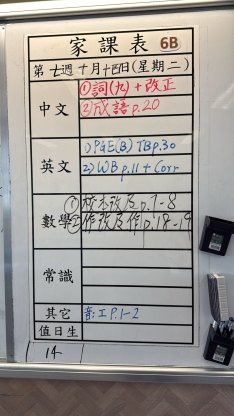 家課表 6B
第七週十月十四日(星期二)
中文
①詞(九)+改正
②成語 p.20
英文
1) PGE(B) TB p.30
2) WB p.11 + Corr
數學
①成本改及 p.7-8
②作改及作 p.18-19
常識
其它
音: 工 P.1-2
值日生
14